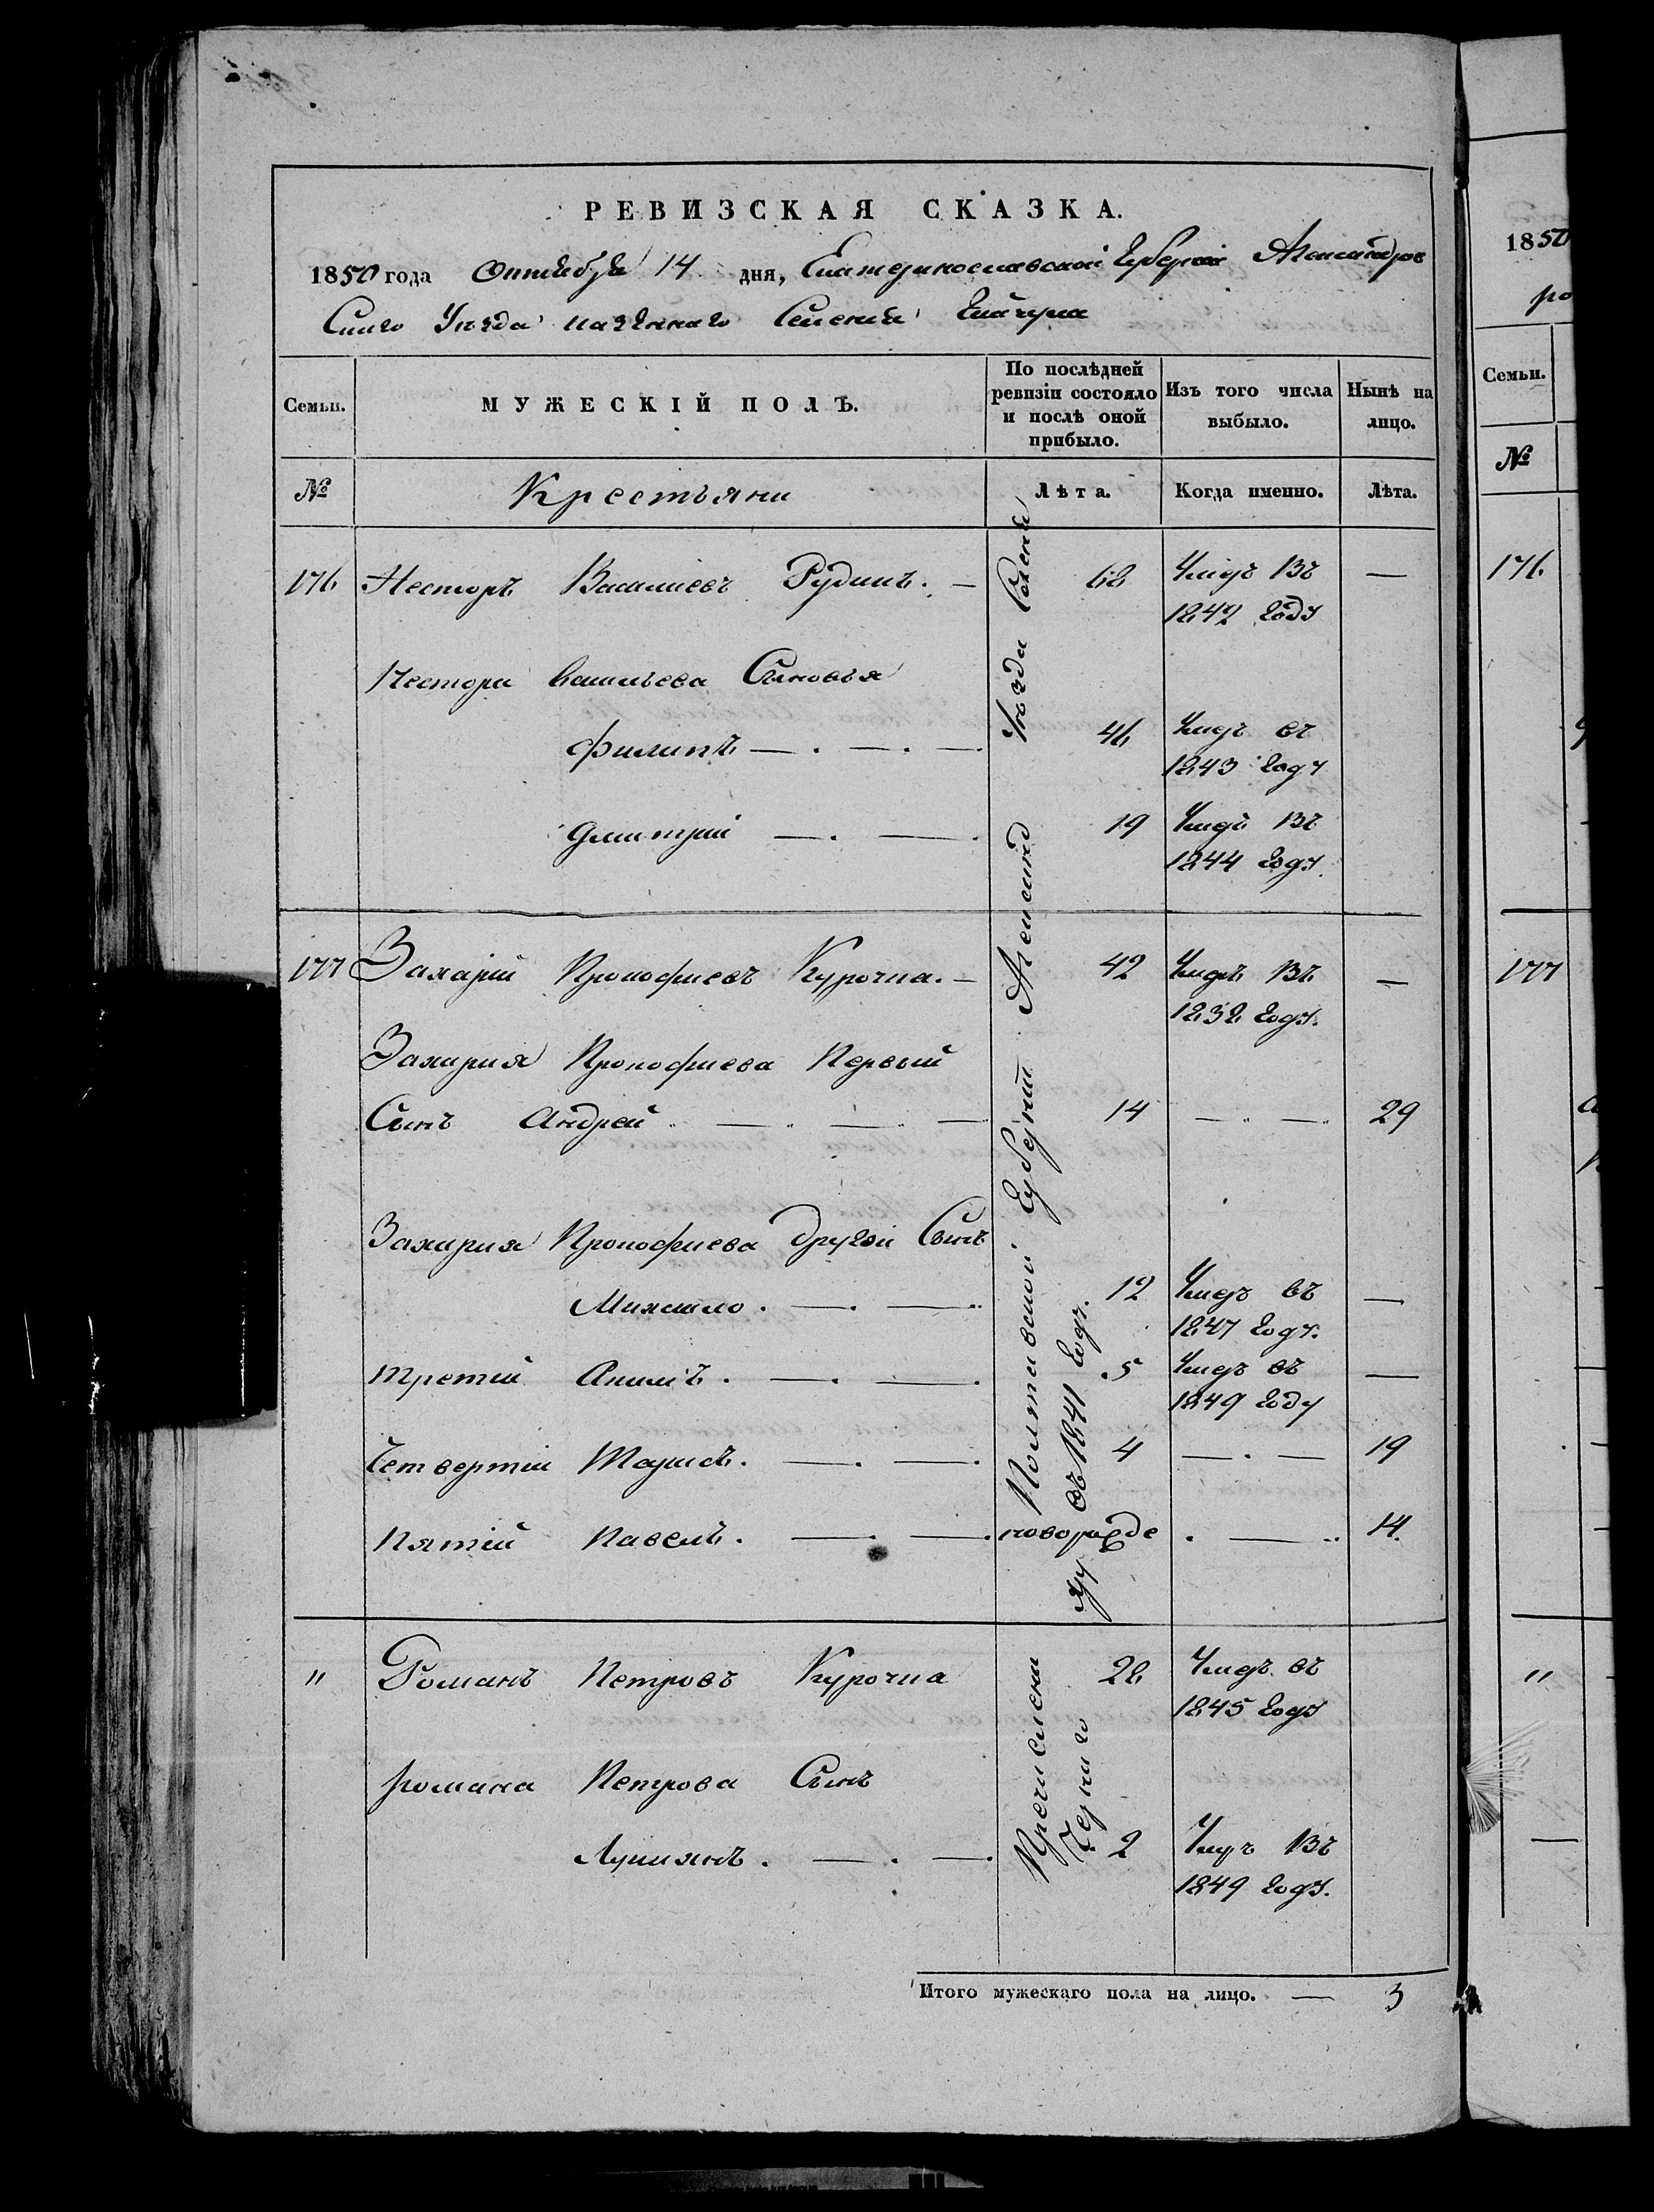 РЕВИЗСКАЯ СКАЗКА.
1850 года Октября 14 дня, Екатеринославской Губернии Александров
Скаго Уезда казеннаго Селения
Семьи. МУЖЕСКІЙ ПОЛЪ. По послѣдней ревизіи состояло и послѣ оной прибыло. Изъ того числа выбыло. Нынѣ на лицо.
№ Крестьяни Лѣта. Когда именно. Лѣта.
176 Несторъ Василиевъ Рудикъ. — 68 Умеръ въ —
1842 году
Нестора Васильева Сыновья
Филипъ — . — . — . 46 Умеръ въ
1843 году
Дмитрий — . — . 19 Умеръ въ
1844 году.
177 Захарій Прокофиевъ Курочка. — 42 Умеръ въ —
1838 году.
Захария Прокофиева Первый
Сынъ Андрей — — — 14 — — 29
Захария Прокофиева другой Сынъ
Михаило . — . — 12 Умеръ въ —
1847 году.
третий Акимъ . — . — . 5 Умеръ въ —
1849 году
Четвертий . — . — . 4 — . — 19
Пятий Павелъ . — . — . новорожде . — 14.
" Романъ Петровъ Курочка 28 Умеръ въ
1845 году
романа Петрова Сынъ
Лукиянъ . — . — . 2 Умеръ въ
1849 году.
Пречислени Полтавской Губернии Уезда
въ 1841 году.
Итого мужескаго пола на лицо. — 3
1850
ро
Семьи.
№
176
177
"